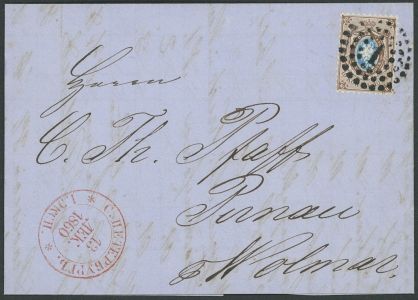 Herrn
C. Th. Pfaff
Pernau
p Wolmar.
С.ПЕТЕРБУРГЪ.
13
ДЕК.
1860
1